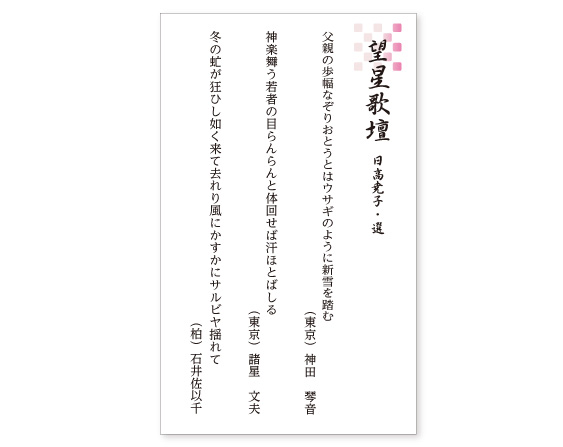 望星歌壇 日高堯子・選
父親の歩幅なぞりおとうとはウサギのように新雪を踏む
（東京）神田 琴音
神楽舞う若者の目らんらんと体回せば汗ほとばしる
（東京）諸星 文夫
冬の虻が狂ひし如く来て去れり風にかすかにサルビヤ揺れて
（柏）石井佐以千